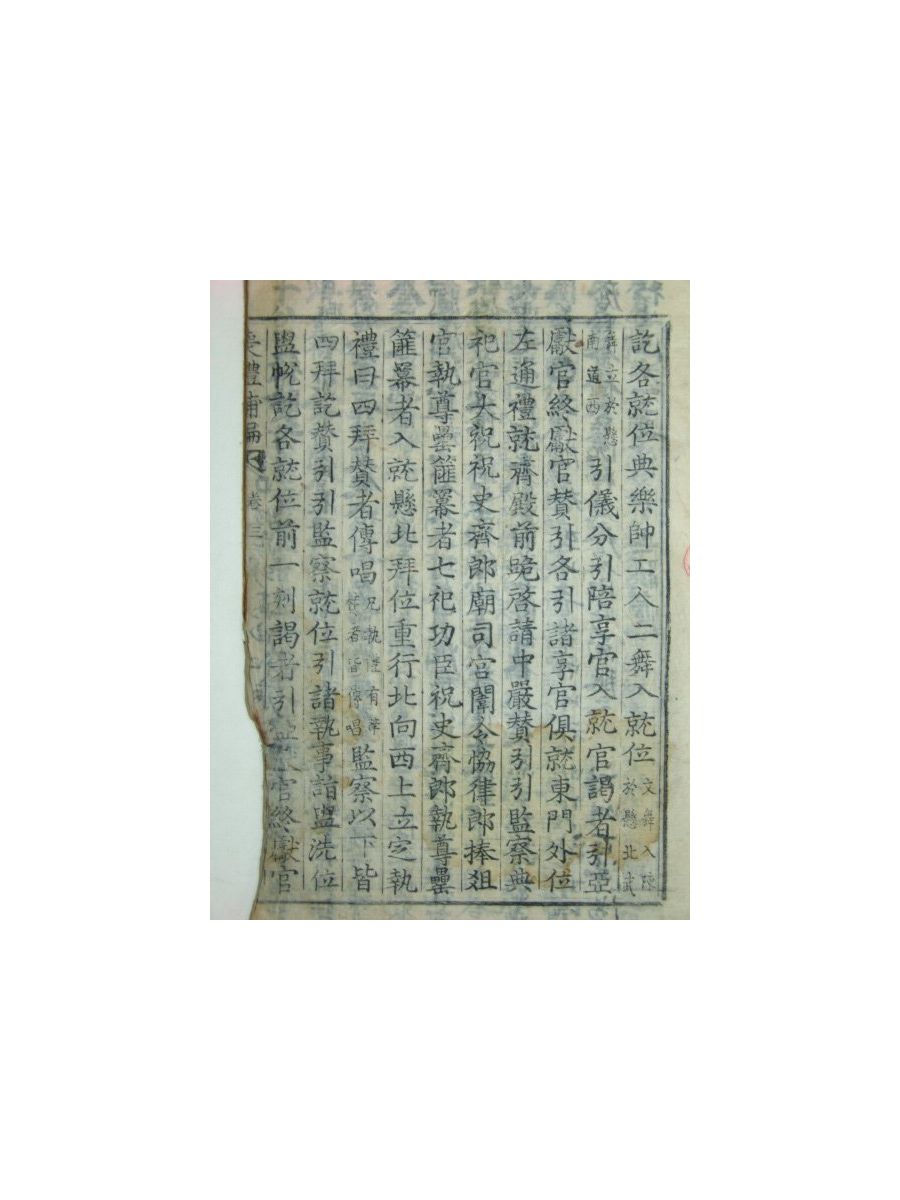 訖各就位典樂帥工人二舞入就位文舞入陳於懸北武
舞立於懸南道西引儀分引陪享官入就官謁者引亞
獻官終獻官贊引各引諸享官俱就東門外位
左通禮就齋殿前跪啓請中嚴贊引引監察典
祀官大祝祝史齋郎廟司宮闈令協律郎捧俎
官執尊罍篚羃者七祀功臣祝史齋郎執尊罍
篚羃者入就懸北拜位重行北向西上立定執
禮曰四拜贊者傳唱凡執禮有辭贊者皆傳唱監察以下皆
四拜訖贊引引監察就位引諸執事詣盥洗位
盥帨訖各就位前一刻謁者引官終獻官
禮補編 卷三